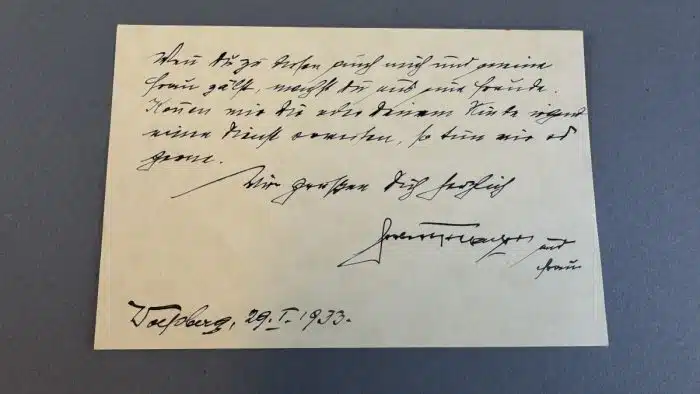 Wenn du zu diesen auch mich und meine
Frau zählst, machst du uns eine Freude.
Können wir dir oder deinem Kinde irgend
einen Dienst erweisen, so tun wir es
gerne.
Wir grüßen dich herzlich
und
Frau
29. I. 1933.